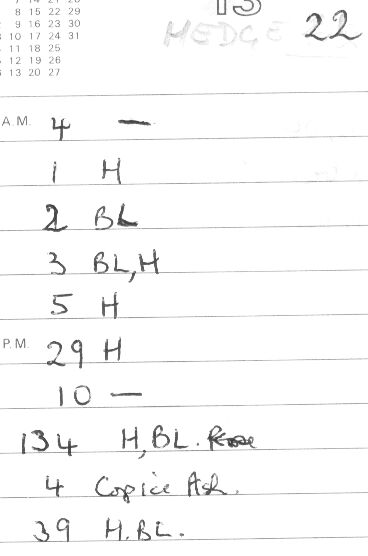 8 15 22 29
9 16 23 30
10 17 24 31
11 18 25
12 19 26
13 20 27
HEDGE 22
A.M. 4 —
1 H
2 BL
3 BL, H
5 H
P.M. 29 H
10 —
134 H, BL.
4 Copice Ash.
39 H. BL.